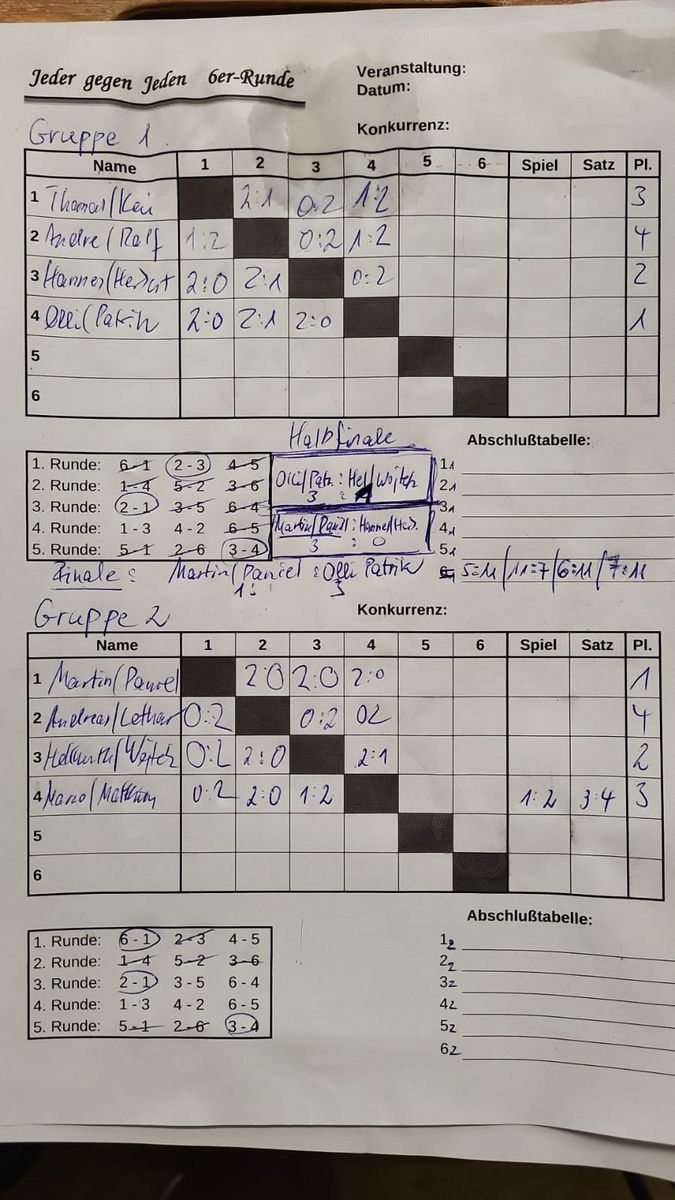 Jeder gegen Jeden 6er-Runde
Veranstaltung:
Datum:
Gruppe 1
Konkurrenz:
Name 1 2 3 4 5 6 Spiel Satz Pl.
1 Thomas/Kai 2:1 0:2 1:2 3
2 Andre/Ralf 1:2 0:2 1:2 4
3 Hannes/ 2:0 2:1 0:2 2
4 Olli/Patrik 2:0 2:1 2:0 1
5
6
Halbfinale
Abschlußtabelle:
1. Runde: 6-1 2-3 4-5
2. Runde: 1-4 5-2 3-6
3. Runde: 2-1 3-5 6-4
4. Runde: 1-3 4-2 6-5
5. Runde: 5-1 2-6 3-4
Olli/Patr. : Hel/Wojtek
3 : 1
Martin/ : Hannes/
3 : 0
11
21
31
41
51
Finale: Martin/ : Olli Patrik 5:11/11:7/6:11/7:11
1: 3
Gruppe 2
Konkurrenz:
Name 1 2 3 4 5 6 Spiel Satz Pl.
1 Martin/ 2:0 2:0 2:0 1
2 Andreas/Lothar 0:2 0:2 02 4
3 /Wojtek 0:2 2:0 2:1 2
4 0:2 2:0 1:2 1:2 3:4 3
5
6
Abschlußtabelle:
1. Runde: 6-1 2-3 4-5
2. Runde: 1-4 5-2 3-6
3. Runde: 2-1 3-5 6-4
4. Runde: 1-3 4-2 6-5
5. Runde: 5-1 2-6 3-4
12
22
32
42
52
62